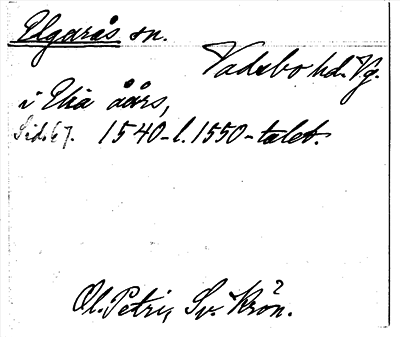 Elgarås sn.
Vadsbo hd. Vg.
i Elia åårs,
Sid. 67. 1540-l. 1550-talet.
Ol. Petri, Sv. Krön.